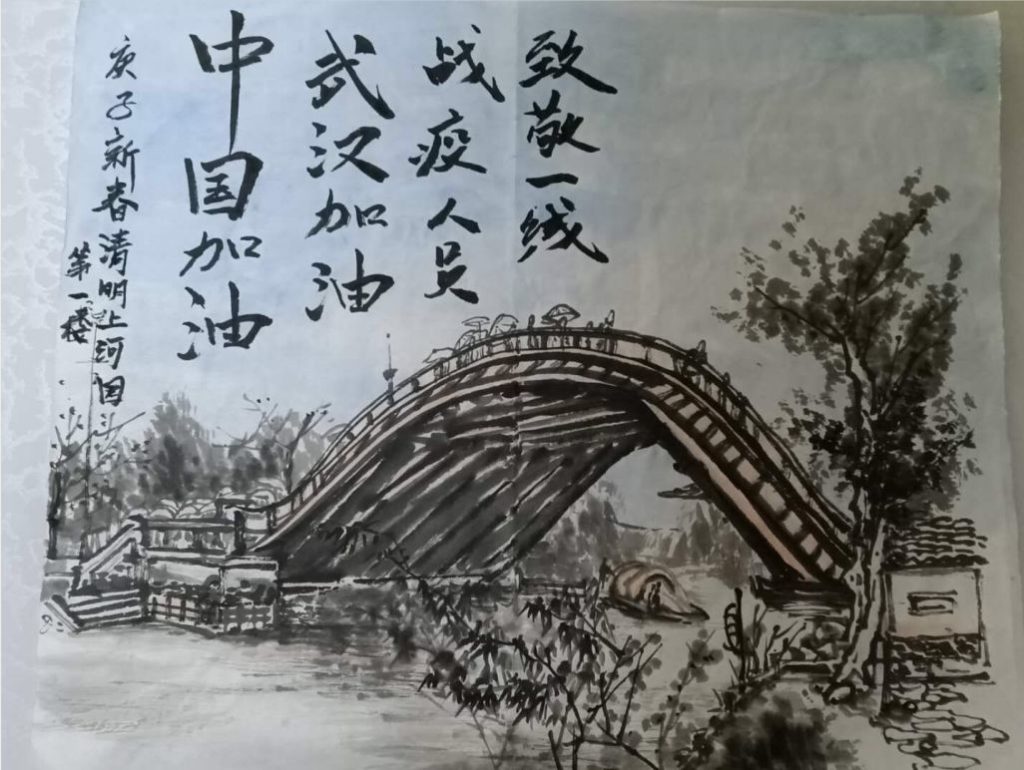 致敬一线
战疫人员
武汉加油
中国加油
庚子新春清明上河园
第一楼